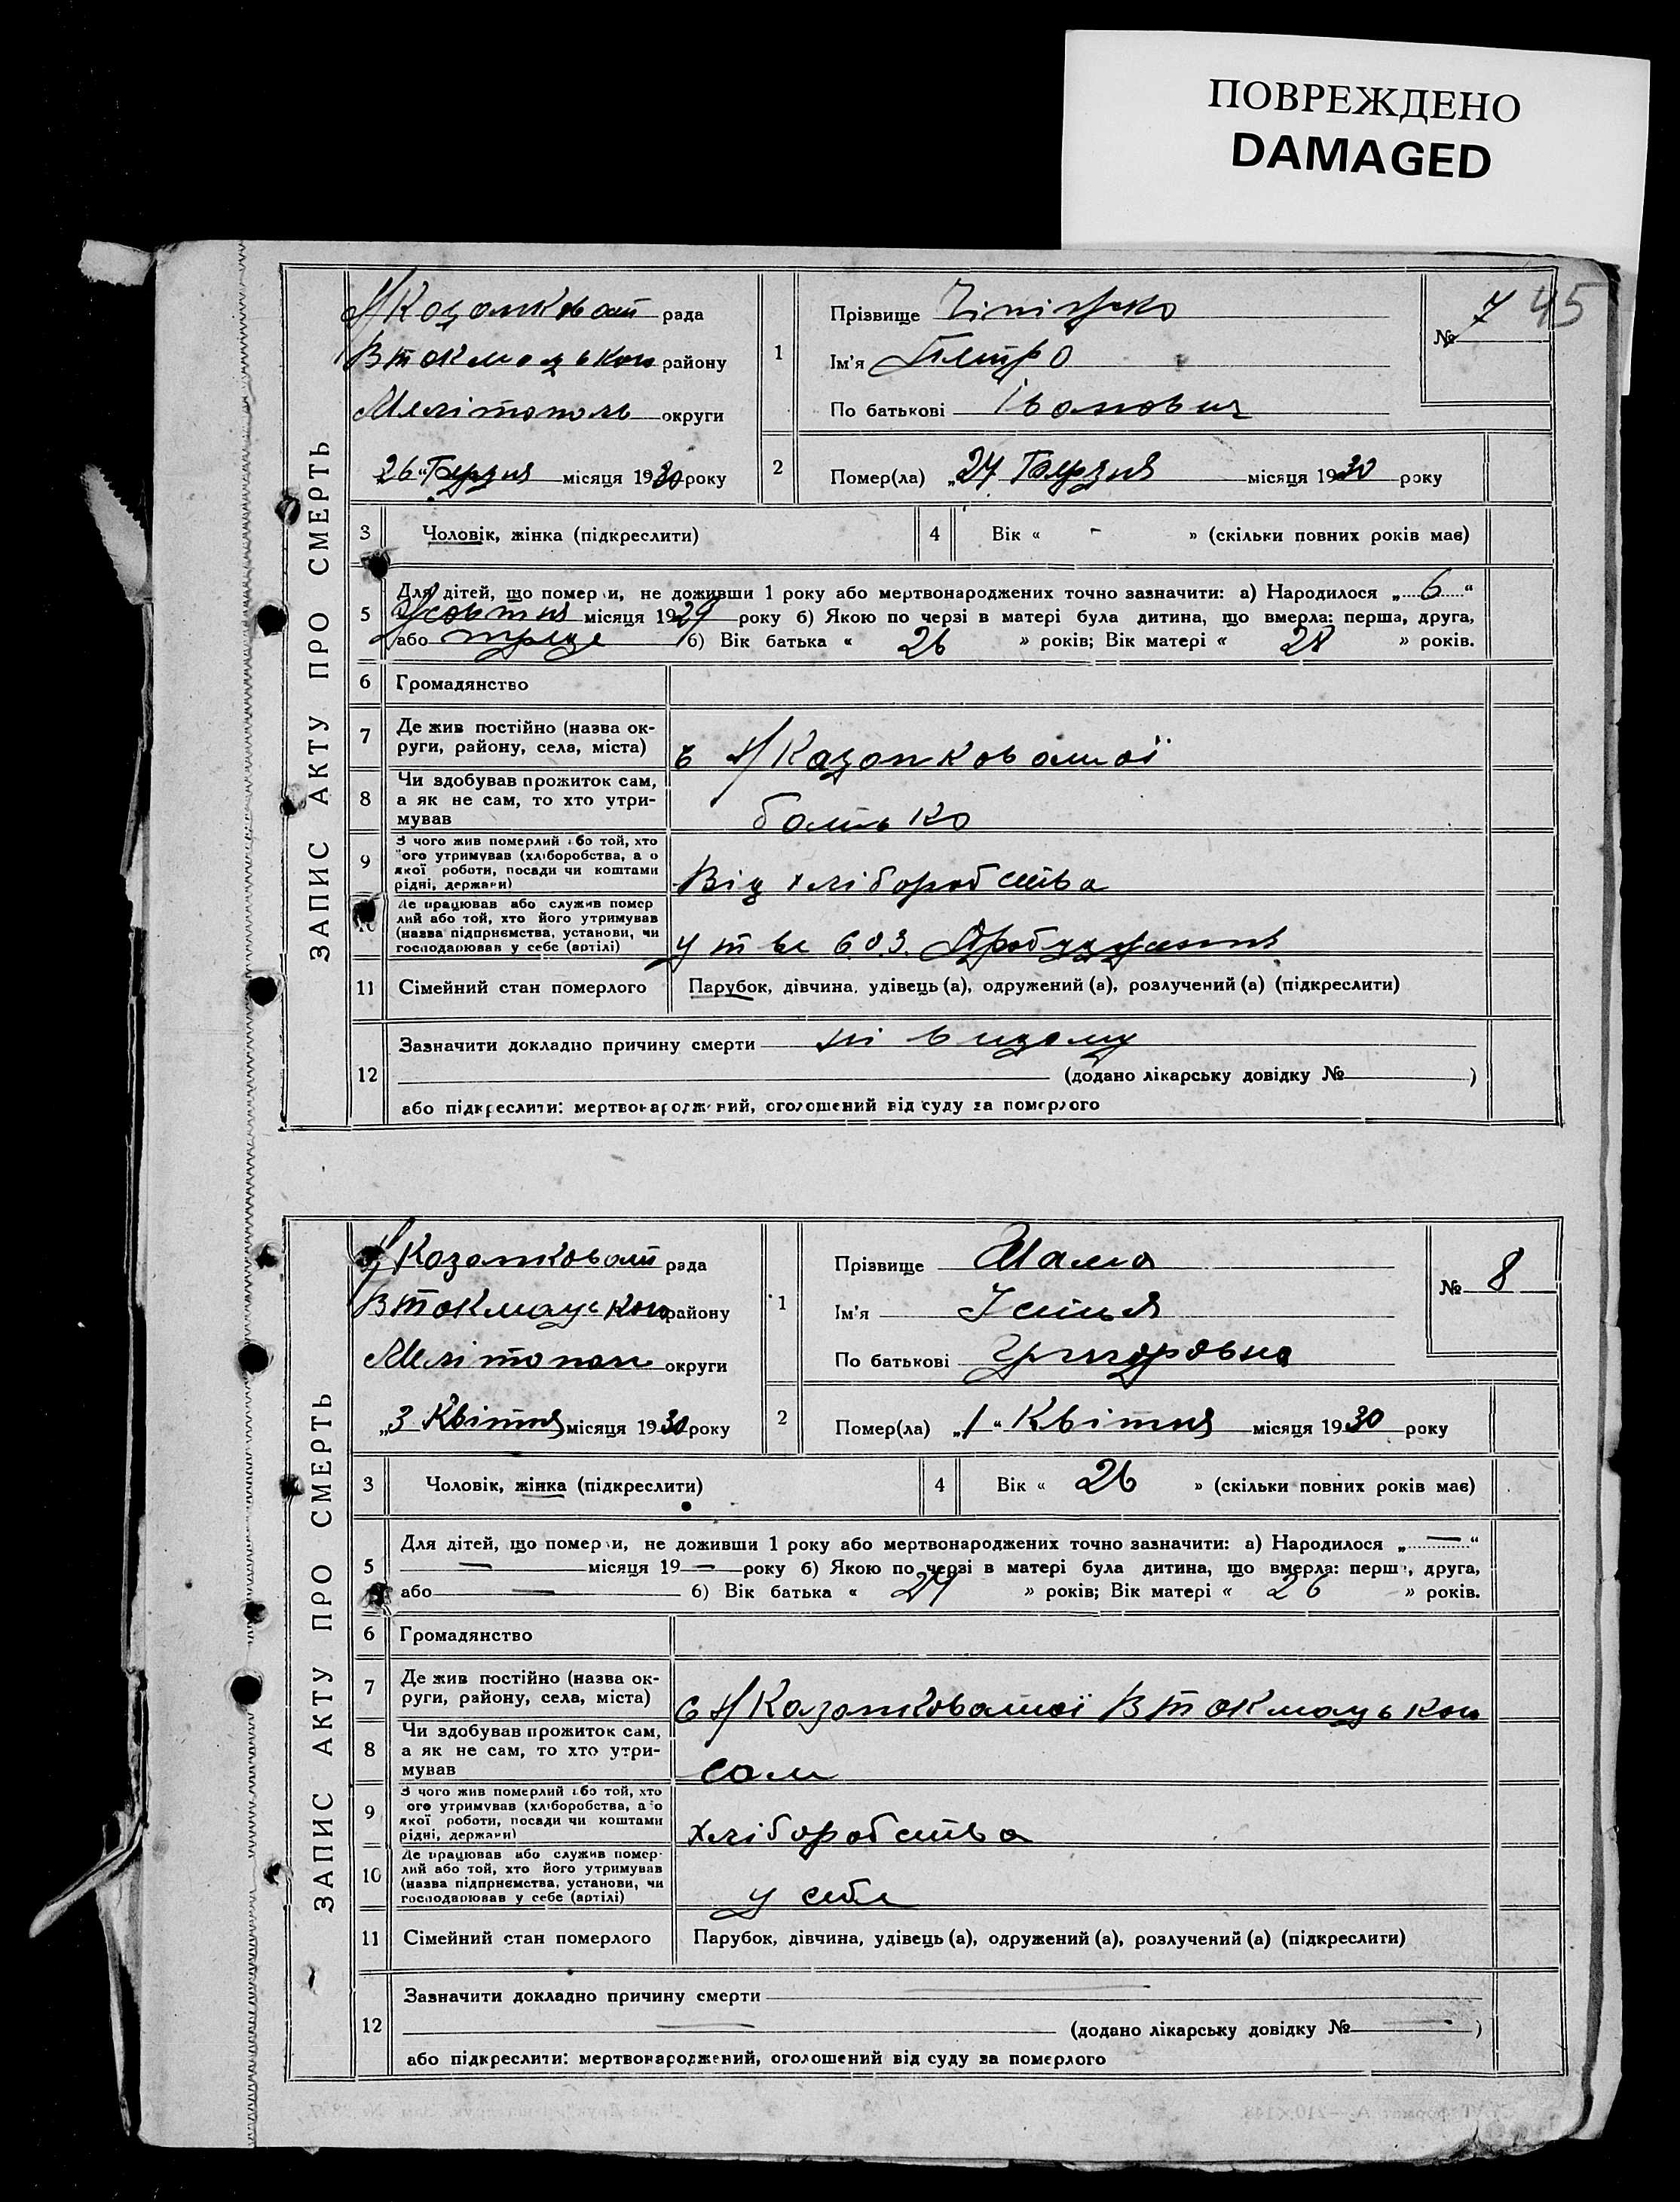 ПОВРЕЖДЕНО
DAMAGED
45
ЗАПИС АКТУ ПРО СМЕРТЬ
рада
району
Мелітополь округи
26 " місяця 1930 року
1
Прізвище
Ім'я Петро
По батькові Іванович
№ 7
2
Помер(ла) „27 місяця 1930 року
3
Чоловік, жінка (підкреслити)
4
Вік « - » (скільки повних років має)
5
Для дітей, що померли, не доживши 1 року або мертвонароджених точно зазначити: а) Народилося „ 6 “
Жовтня місяця 1929 року б) Якою по черзі в матері була дитина, що вмерла: перша, друга,
або трете б) Вік батька « 26 » років; Вік матері « 28 » років.
6
Громадянство
7
Де жив постійно (назва ок-
руги, району, села, міста)
с Н/Казанковатої
8
Чи здобував прожиток сам,
а як не сам, то хто утри-
мував
батько
9
З чого жив померлий або той, хто
його утримував (хліборобства, а о
якої роботи, посади чи коштами
рідні, держави)
Від хліборобства
10
Де працював або служив помер
лий або той, хто його утримував
(назва підприємства, установи, чи
господарював у себе (артілі)
у
11
Сімейний стан померлого
Парубок, дівчина, удівець (а), одружений (а), розлучений (а) (підкреслити)
12
Зазначити докладно причину смерти
(додано лікарську довідку № )
або підкреслити: мертвонароджений, оголошений від суду за померлого
ЗАПИС АКТУ ПРО СМЕРТЬ
Н/Казанковат рада
району
округи
„3 Квітня місяця 1930 року
1
Прізвище
Ім'я
По батькові Григоровна
№ 8
2
Помер(ла) „1“ Квітня місяця 1930 року
3
Чоловік, жінка (підкреслити)
4
Вік « 26 » (скільки повних років має)
5
Для дітей, що померли, не доживши 1 року або мертвонароджених точно зазначити: а) Народилося „ — “
— місяця 19 — року б) Якою по черзі в матері була дитина, що вмерла: перша, друга,
або — б) Вік батька « » років; Вік матері « 26 » років.
6
Громадянство
7
Де жив постійно (назва ок-
руги, району, села, міста)
с Н/Казанковатої
8
Чи здобував прожиток сам,
а як не сам, то хто утри-
мував
сам
9
З чого жив померлий або той, хто
його утримував (хліборобства, а о
якої роботи, посади чи коштами
рідні, держави)
хліборобства
10
Де працював або служив помер-
лий або той, хто його утримував
(назва підприємства, установи, чи
господарював у себе (артілі)
у себе
11
Сімейний стан померлого
Парубок, дівчина, удівець (а), одружений (а), розлучений (а) (підкреслити)
12
Зазначити докладно причину смерти —
— (додано лікарську довідку № — )
або підкреслити: мертвонароджений, оголошений від суду за померлого